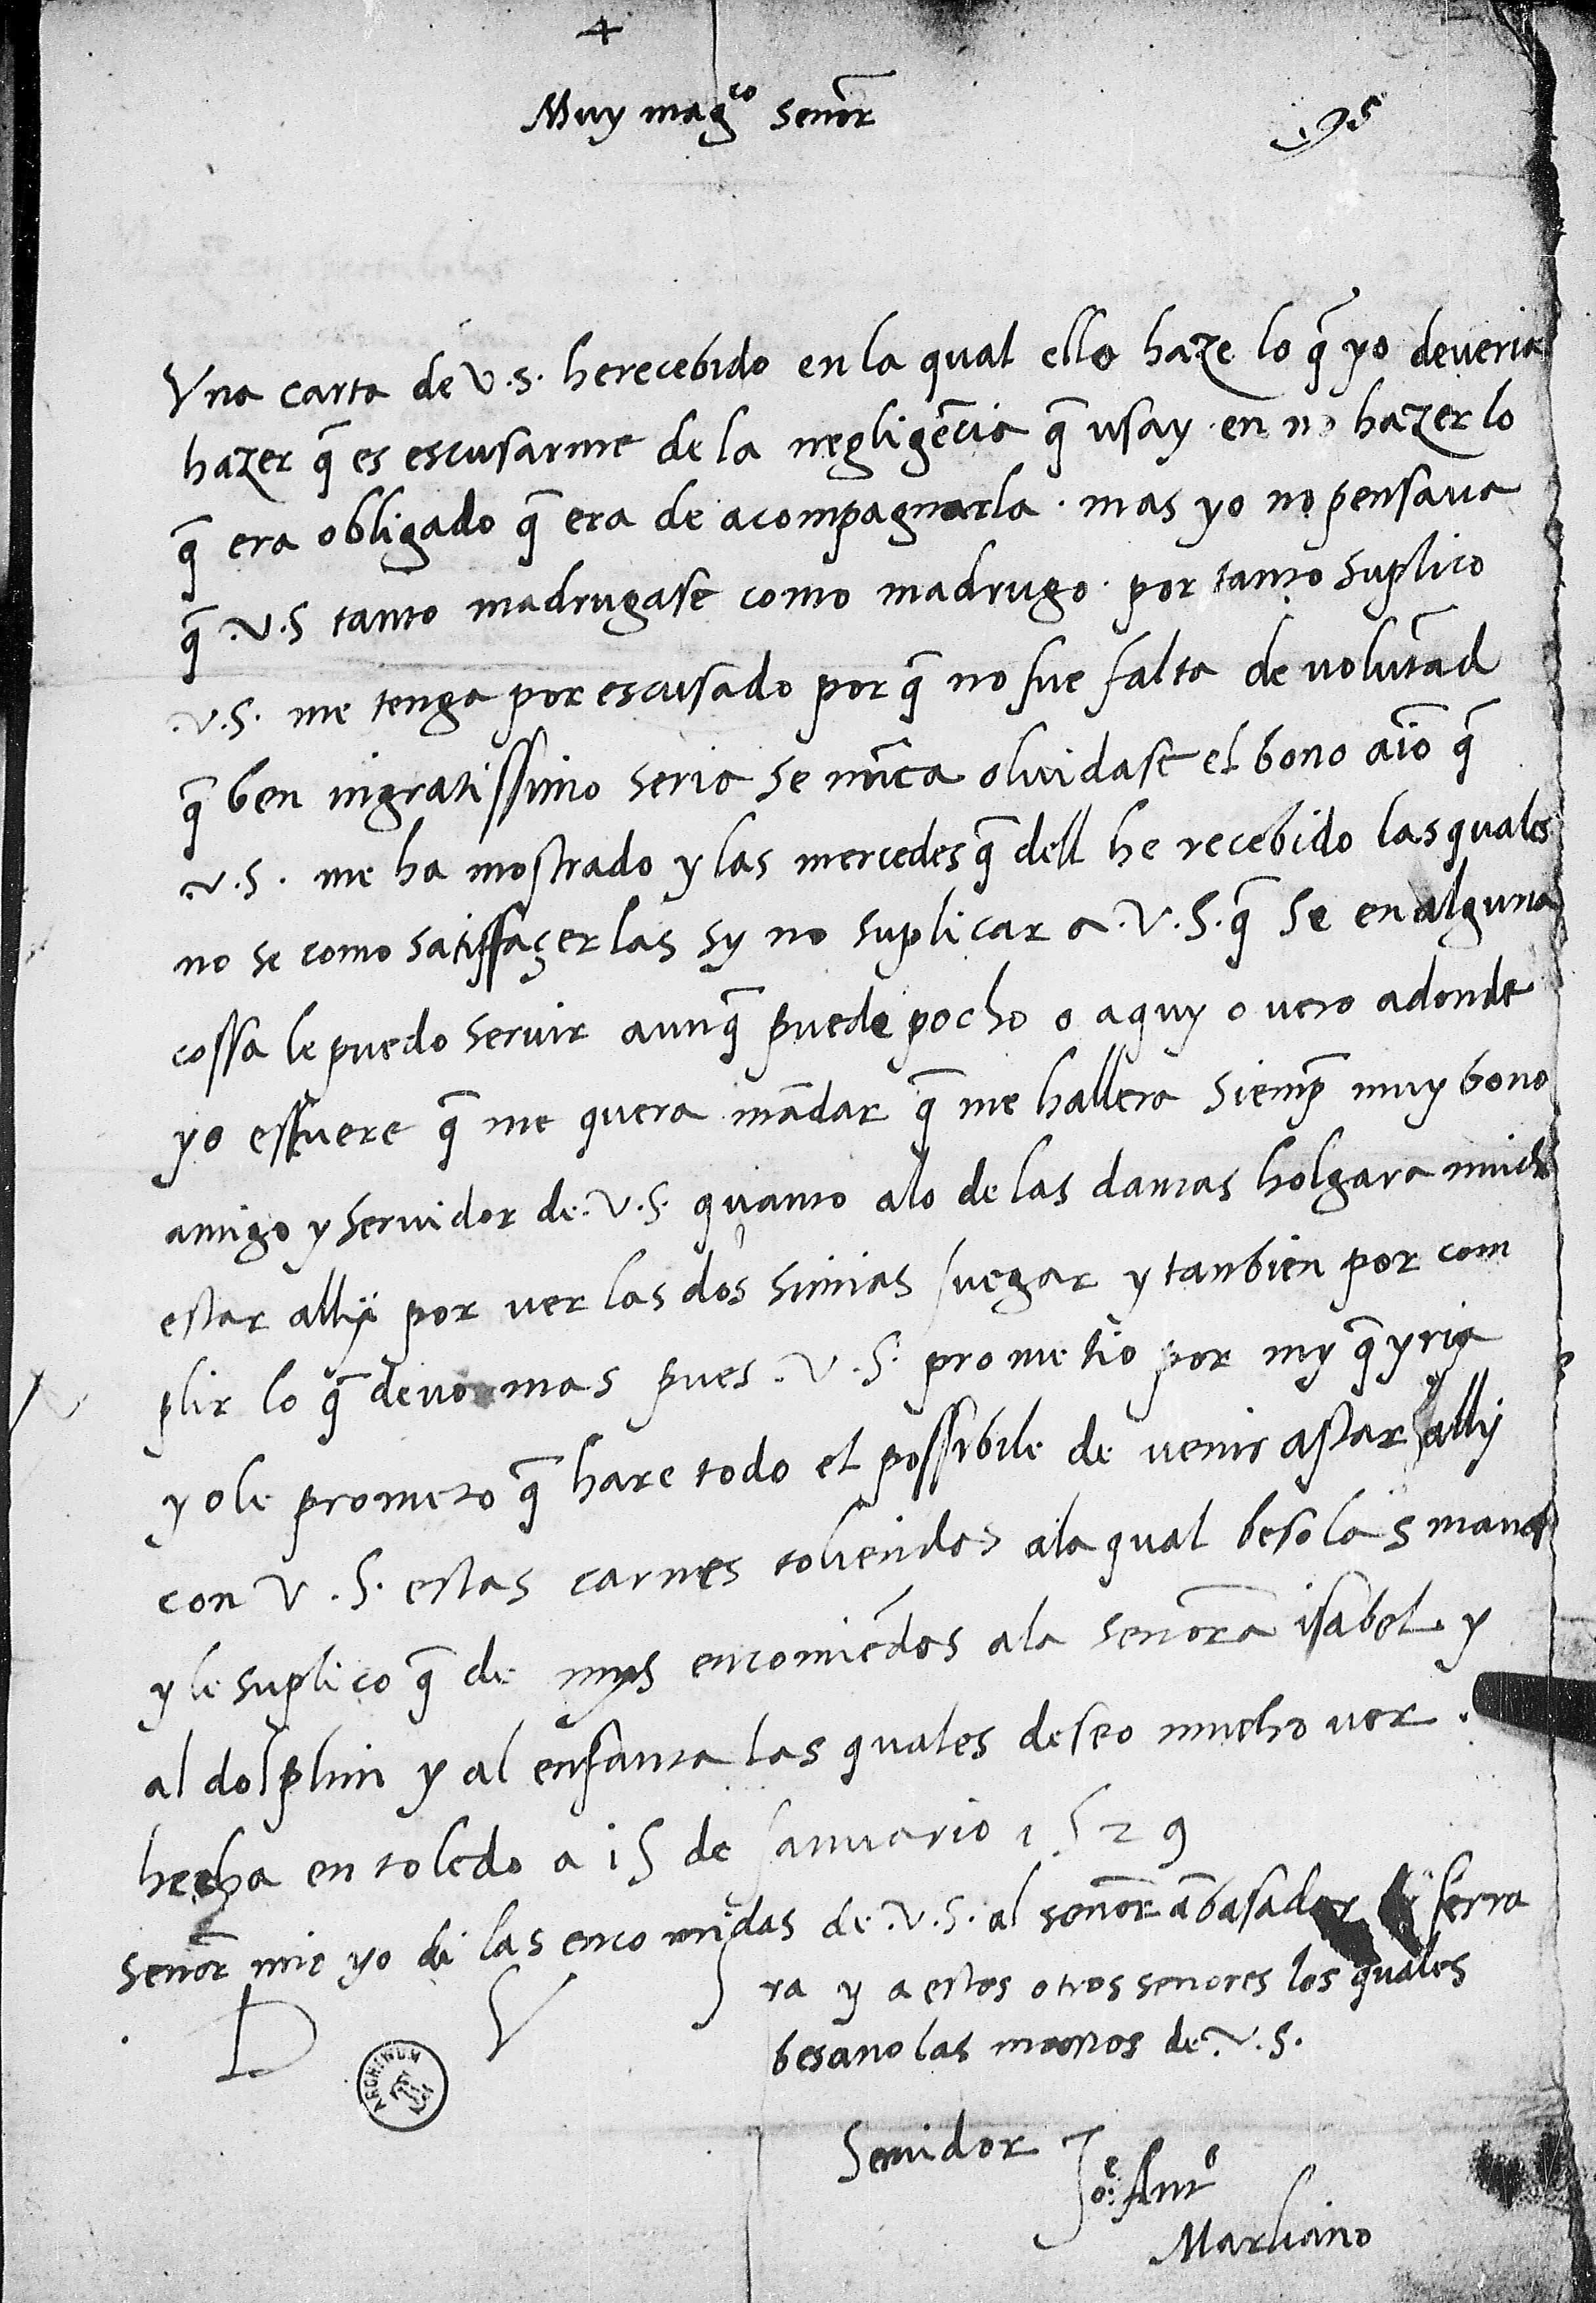 +
Muy mag.co senōr
95
Vna carta de V.S. he recebido en la qual ella haze lo q̄ yo deueria
hazer q̄ es escusarme de la negligēcia q̄ usay en no hazer lo
q̄ era obligado q̄ era de acompagnarla. mas yo no pensaua
q̄ .V.S tanto madrugase como madrugo. por tanto suplico
.V.S. me tenga por escusado por q̄ no fue falta de uolūtad
q̄ ben ingratissimo seria se nūca oluidase el bono aīo q̄
.V.S. me ha mostrado y las mercedes q̄ dell he recebido las quales
no se como satisfaçerlas sy no suplicar a .V.S. q̄ se en alguna
cossa le puedo seruir aunq̄ puede pocho o aquy o uero adonde
yo estuere q̄ me quera mādar q̄ me hallera siemp̄ muy bono
amigo y seruidor de .V.S. quanto alo de las damas holgara much
estar ally por uer las dos simias Juegar y tanbien por com
plir lo q̄ deuo mas pues .V.S. prometio por my q̄ yria
yo le prometo q̄ hare todo el possibile de uenir astar ally
con V.S. estas carnes toliendas ala qual beso las manos
y le suplico q̄ de mys encomiēdas ala senōra isabel y
al dolphin y al enfanta las quales deseo mucho uer.
hecha en toledo a i5 de Januario 1529
senōr mio yo di las encomidas de .V.S. al senōr ābasador ferra
ra y a estos otros senores los quales
besano las manos de .V.S.
D V
ARCHIVUM
Seruidor Jo: Ant.o
Marliano